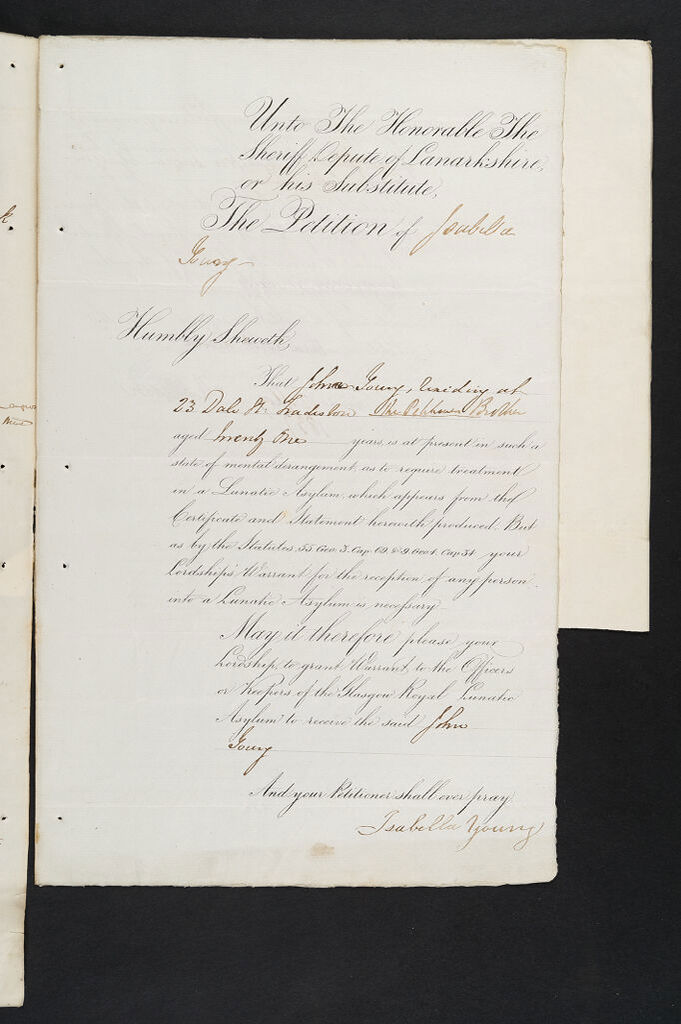 Unto The Honorable The
Sheriff Depute of Lanarkshire,
or his Substitute,
The Petition of Isabella
Young
Humbly Sheweth,
That John Young, residing at
23 Dale St Tradeston the Petitioners Brother
aged Twenty One years, is at present in such a
state of mental derangement, as to require treatment
in a Lunatic Asylum, which appears from the
Certificate and Statement herewith produced. But
as by the Statutes, 55 Geo. 3. Cap. 69 & 9 Geo 4. Cap. 34 your
Lordship's Warrant for the reception of any person
into a Lunatic Asylum is necessary
May it therefore please your
Lordship, to grant Warrant, to the Officers
or Keepers of the Glasgow Royal Lunatic
Asylum to receive the said John
Young
And your Petitioner shall ever pray
Isabella Young